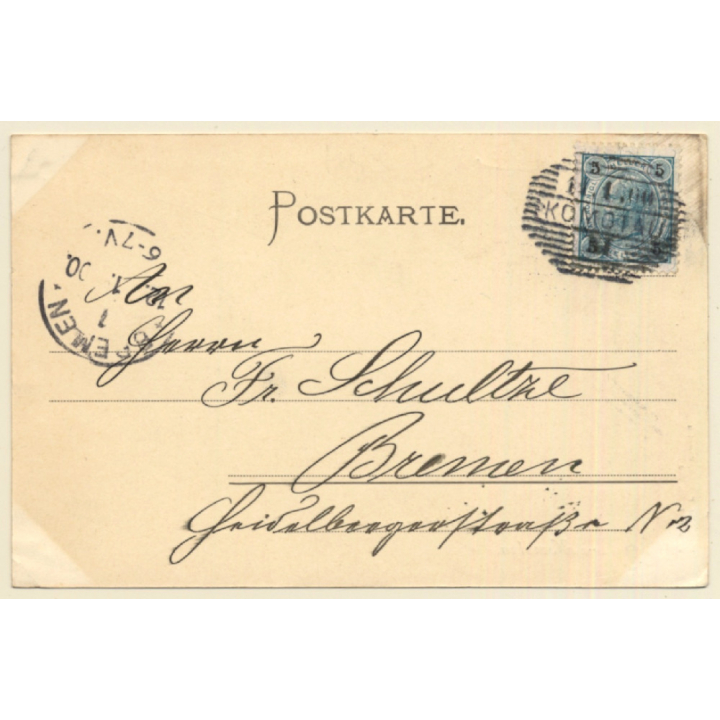 POSTKARTE.
5 5
KOMOTAU
BREMEN.
1
6-7V.
An
Herrn
Fr. Schultze
Bremen
Heidelbergerstraße N. 2